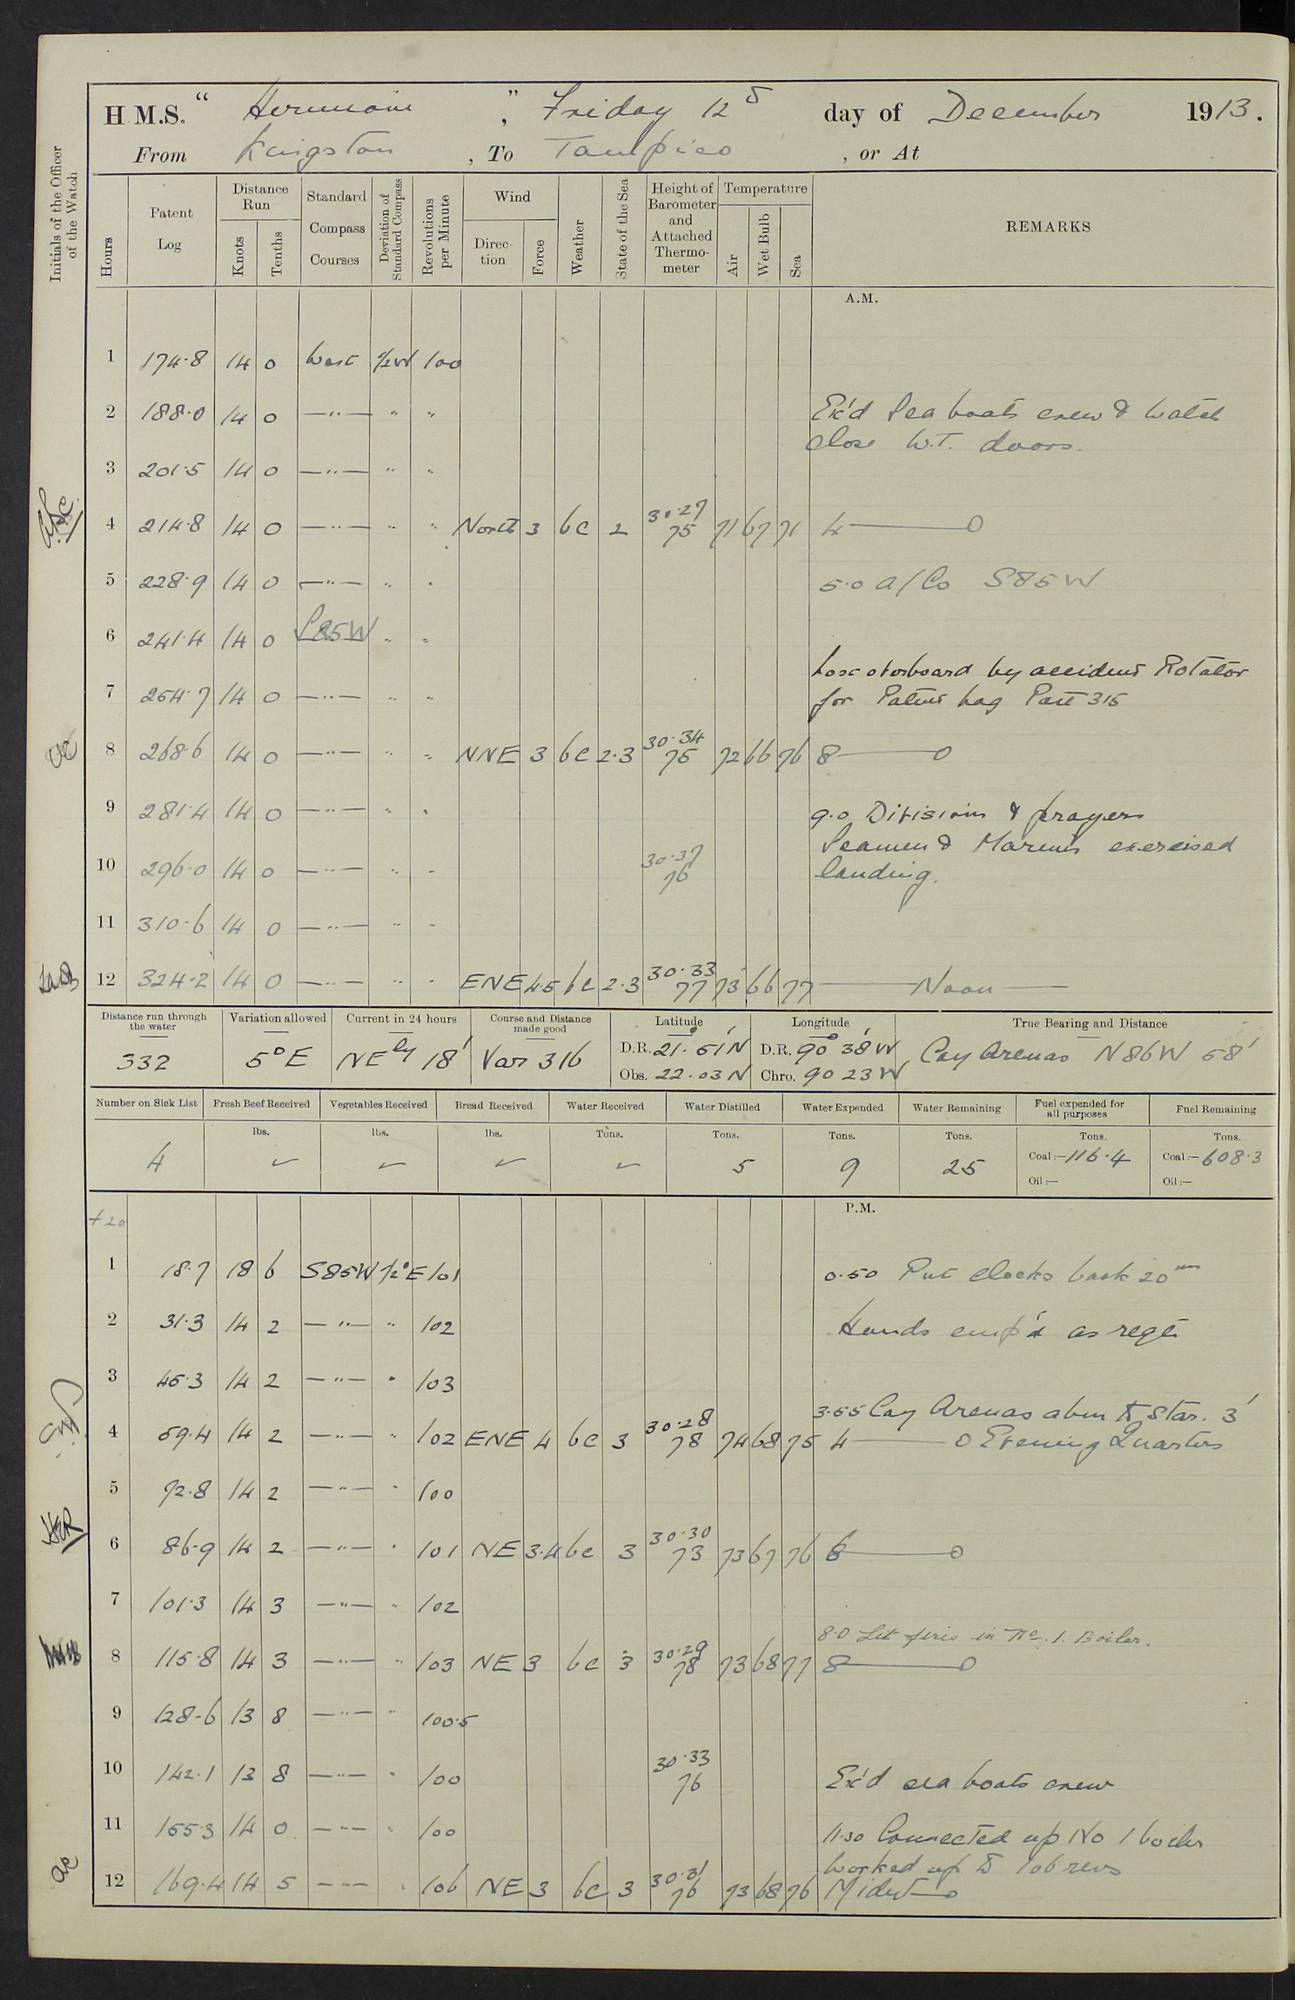 H.M.S. " Hermione ", Friday 12th day of December 1913.
From Kingston , To Tampico , or At
Initials of the Officer of the Watch
Hours Patent Log Distance Run Knots Tenths Standard Compass Courses Deviation of Standard Compass Revolutions per Minute Wind Direction Force Weather State of the Sea Height of Barometer and Attached Thermometer Temperature Air Wet Bulb Sea REMARKS
A.M.
1 174.8 14 0 West ½W 100
2 188.0 14 0 —"— " " Ex'd Sea boats crew & watch
close W.T. doors.
3 201.5 14 0 —"— " "
4 214.8 14 0 —"— " " North 3 bc 2 30.27 75 71 67 71 4———0
5 228.9 14 0 —"— " " 5.0 a/Co S85W
6 241.4 14 0 S85W " "
Lost overboard by accident Rotator
7 254.7 14 0 —"— " " for Patent Log Patt 315
8 268.6 14 0 —"— " " NNE 3 bc 2.3 30.34 75 72 66 76 8———0
9 281.4 14 0 —"— " " 9.0 Divisions & prayers
Seamen & Marines exercised
10 296.0 14 0 —"— " " 30.37 76 landing.
11 310.6 14 0 —"— " "
12 324.2 14 0 —"— " " ENE 4.5 bc 2.3 30.33 77 73 66 77 ———Noon———
Distance run through the water Variation allowed Current in 24 hours Course and Distance made good Latitude Longitude True Bearing and Distance
332 5°E NEly 18' Var 316 D.R. 21° 51'N D.R. 90° 38'W Cay Arenas N86W 58'
Obs. 22.03N Chro. 90 23W
Number on Sick List Fresh Beef Received Vegetables Received Bread Received Water Received Water Distilled Water Expended Water Remaining Fuel expended for all purposes Fuel Remaining
lbs. lbs. lbs. Tons. Tons. Tons. Tons. Tons. Tons.
4 ✓ ✓ ✓ ✓ 5 9 25 Coal:—116.4 Coal:—608.3
Oil:— Oil:—
P.M.
+20
1 18.7 18 6 S85W ½°E 101 0.50 Put clocks back 20 mns
2 31.3 14 2 —"— " 102 Hands emp'd as reqte
3 45.3 14 2 —"— " 103
3.55 Cay Arenas abm to Star. 3'
4 59.4 14 2 —"— " 102 ENE 4 bc 3 30.28 78 74 68 75 4———0 Evening Quarters
5 72.8 14 2 —"— " 100
6 86.9 14 2 —"— " 101 NE 3.4 bc 3 30.30 73 73 67 76 6———0
7 101.3 14 3 —"— " 102
8.0 Lit fires in No. 1. Boiler.
8 115.8 14 3 —"— " 103 NE 3 bc 3 30.29 78 73 68 77 8———0
9 128.6 13 8 —"— " 100.5
10 142.1 13 8 —"— " 100 30.33 76 Ex'd sea boats crew
11 155.3 14 0 —"— " 100 11.30 Connected up No 1 boiler
worked up to 106 revs
12 169.4 14 5 —"— " 106 NE 3 bc 3 30.31 76 73 68 76 Midnt—0